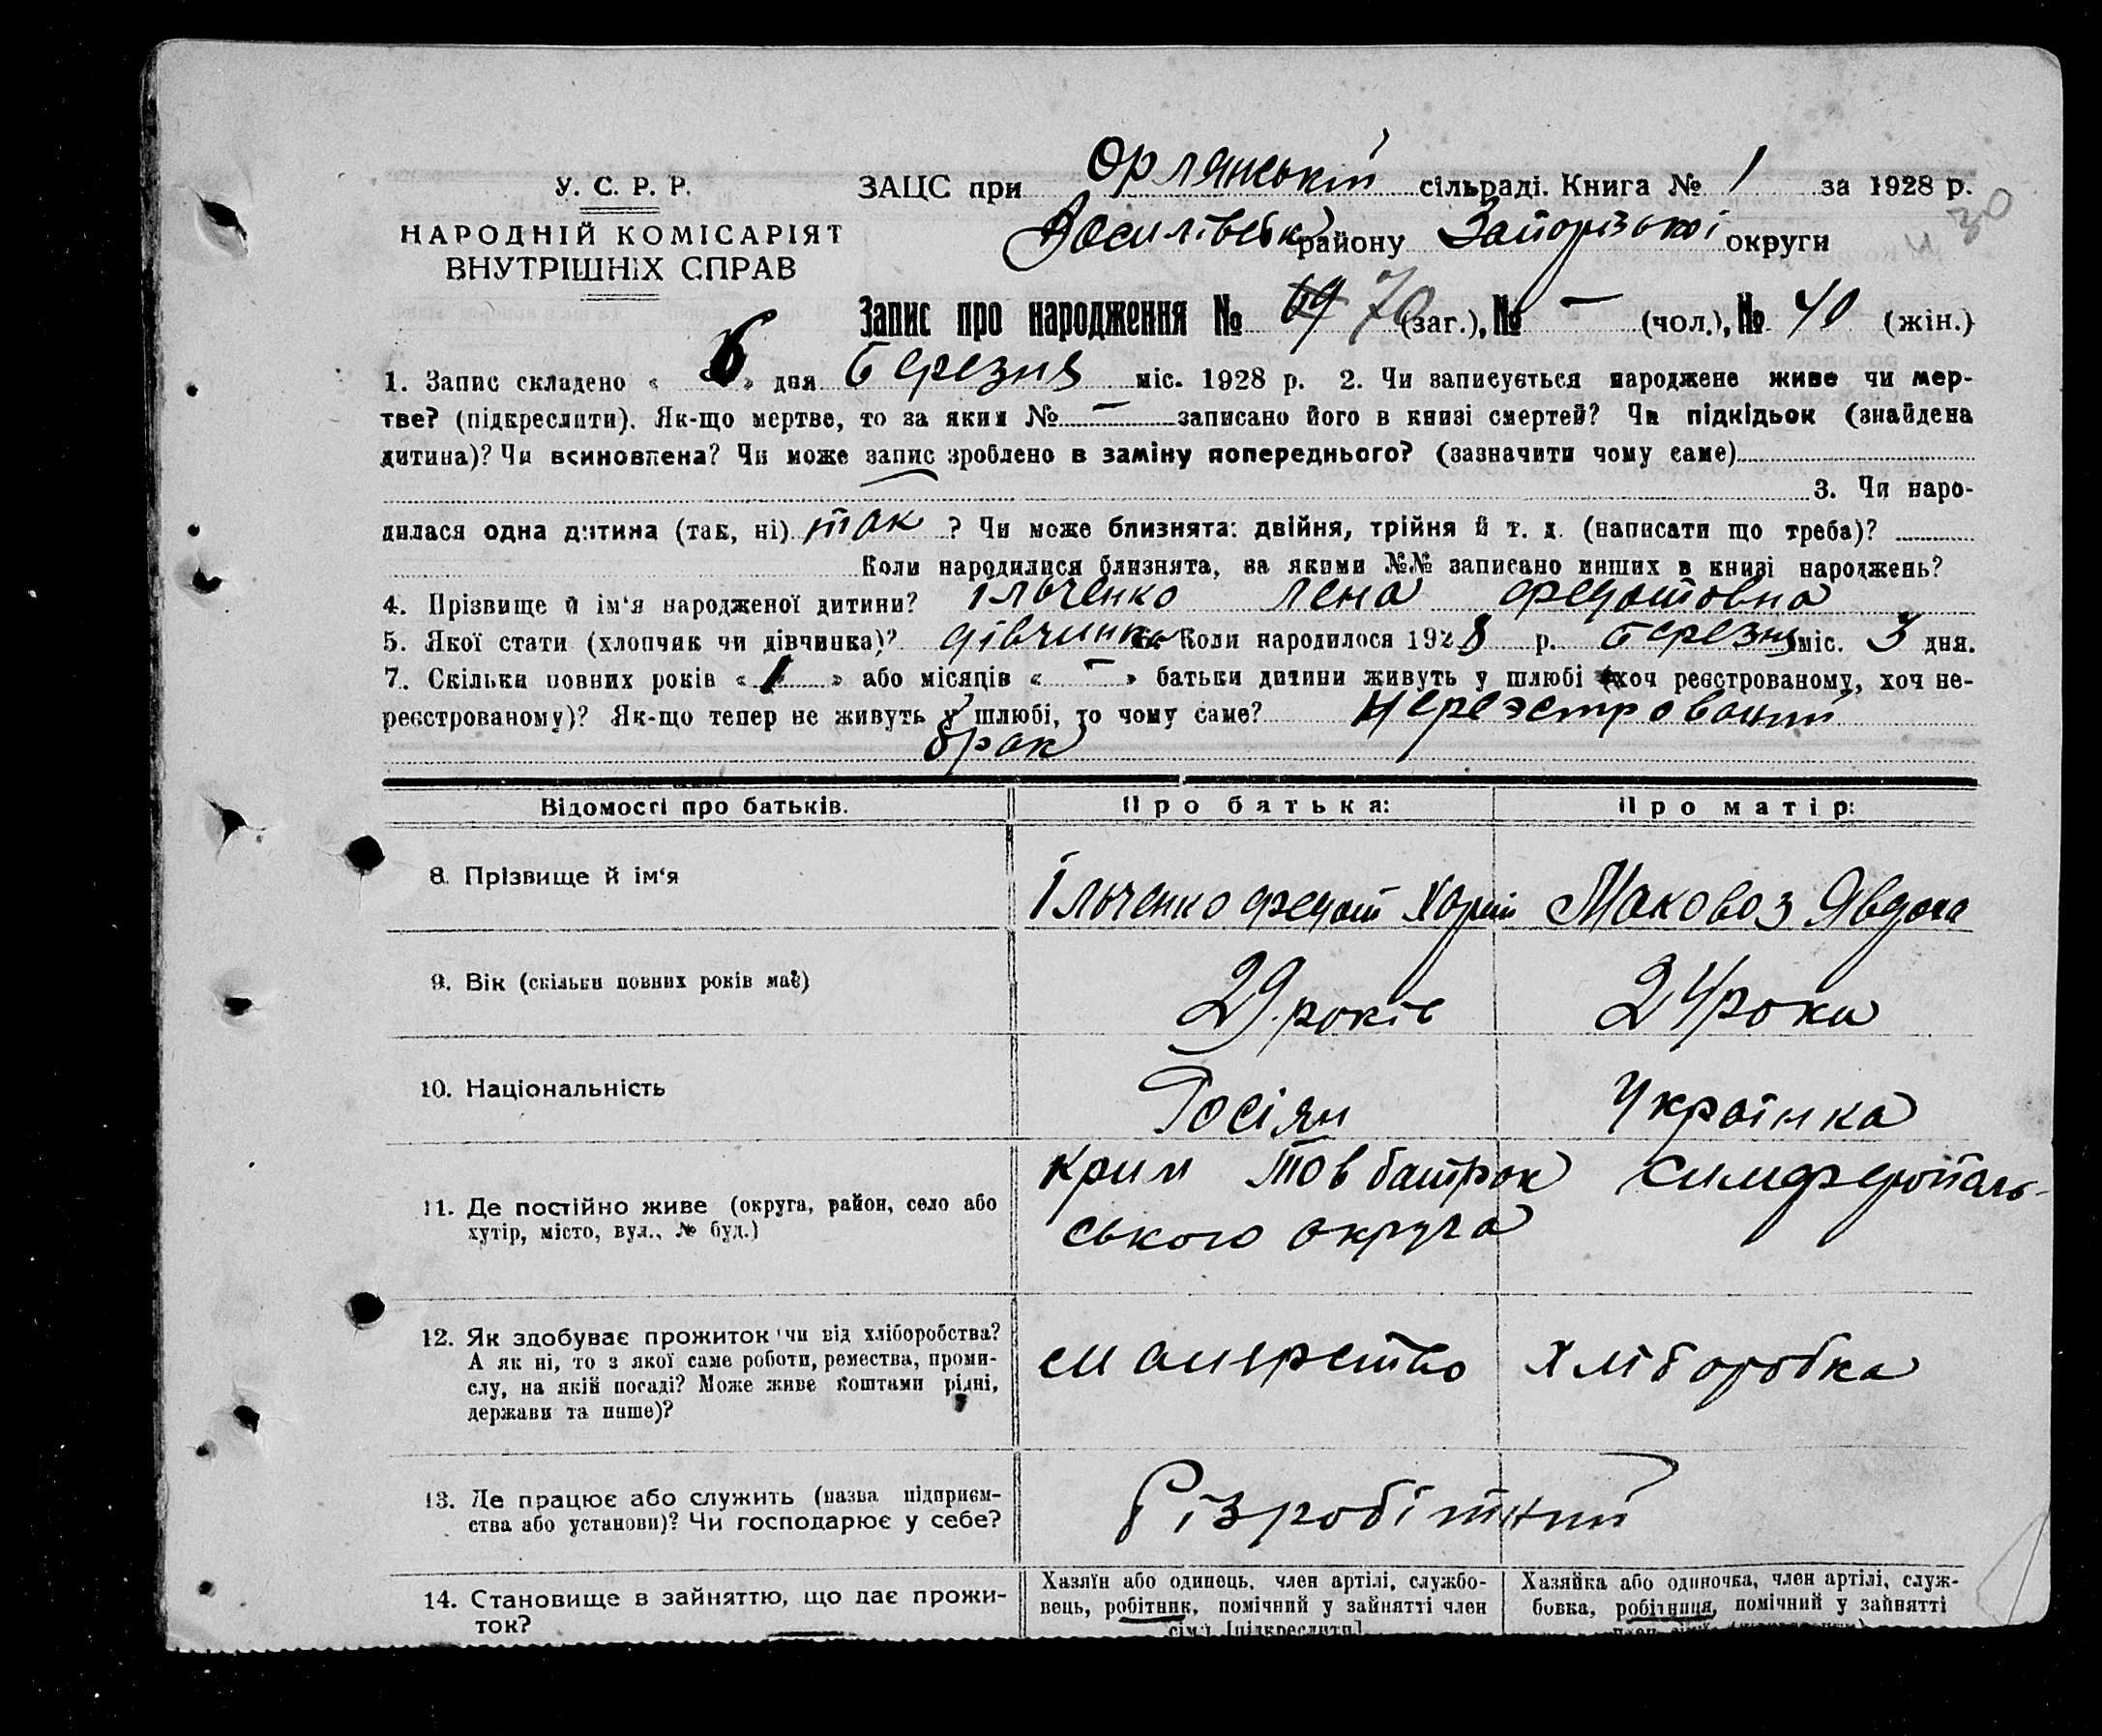 У. С. Р. Р.
НАРОДНІЙ КОМІСАРІЯТ
ВНУТРІШНІХ СПРАВ
ЗАЦС при Орлянській сільраді. Книга № 1 за 1928 р.
30
Василівськ району Запорізької округи
Запис про народження № 69 70 (заг.), № — (чол.), № 40 (жін.)
1. Запис складено « 6 » дня березня міс. 1928 р. 2. Чи записується народжене живе чи мер-
тве? (підкреслити). Як-що мертве, то за яким № — записано його в книзі смертей? Чи підкідьок (знайдена
дитина)? Чи всиновлена? Чи може запис зроблено в заміну попереднього? (зазначити чому саме)
3. Чи наро-
дилася одна дитина (так, ні) так ? Чи може близнята: двійня, трійня й т. д. (написати що треба)?
Коли народилися близнята, за якими №№ записано инших в книзі народжень?
4. Прізвище й ім‘я народженої дитини? Ільченко Лена Федотовна
5. Якої стати (хлопчик чи дівчинка)? дівчинка Коли народилося 1928 р. березня міс. 3 дня.
7. Скільки повних років « 1 » або місяців « — » батьки дитини живуть у шлюбі (хоч реєстрованому, хоч не-
реєстрованому)? Як-що тепер не живуть у шлюбі, то чому саме? Нереэстрований
брак
Відомості про батьків.
Про батька:
Про матір:
8. Прізвище й ім‘я
Ільченко Федот Харит
Маковоз Явдоха
9. Вік (скільки повних років має)
29 років
24 роки
10. Національність
Росіян
Українка
11. Де постійно живе (округа, район, село або
хутір, місто, вул., № буд.)
Крим Симферопаль-
ського округа
12. Як здобуває прожиток чи від хліборобства?
А як ні, то з якої саме роботи, ремества, проми-
слу, на якій посаді? Може живе коштами рідні,
держави та инше)?
Хліборобка
13. Де працює або служить (назва підприєм-
ства або установи)? Чи господарює у себе?
Різробітний
14. Становище в зайняттю, що дає прожи-
ток?
Хазяїн або одинець, член артілі, службо-
вець, робітник, помічний у зайнятті член
сім'ї [підкреслити]
Хазяйка або одиночка, член артілі, служ-
бовка, робітниця, помічний у зайнятті